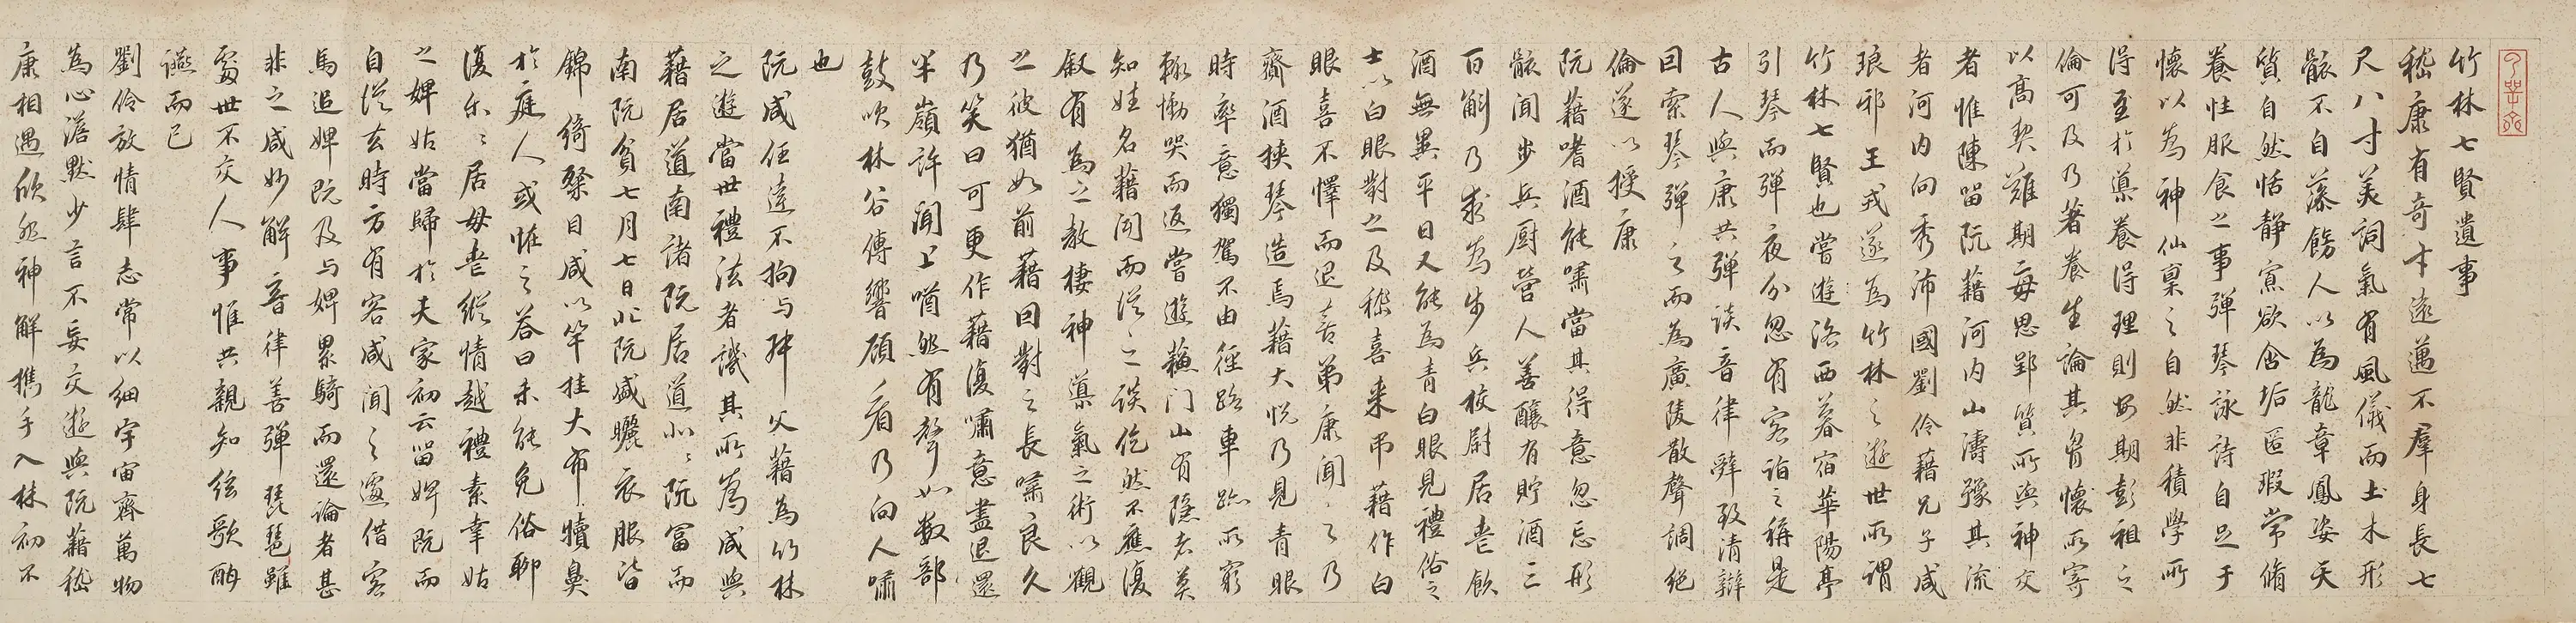 竹林七賢遺事
嵇康有奇才遠邁不羣身長七
尺八寸美詞氣有風儀而土木形
骸不自藻飾人以為龍章鳳姿天
質自然恬靜寡欲含垢匿瑕常脩
養性服食之事彈琴詠詩自足于
懷以為神仙稟之自然非積學所
得至於導養得理則安期彭祖之
倫可及乃著養生論其胷懷所寄
以高契難期每思郢質所與神交
者惟陳留阮藉河內山濤豫其流
者河內向秀沛國劉伶藉兄子咸
琅邪王戎遂為竹林之遊世所謂
竹林七賢也嘗遊洛西暮宿華陽亭
引琴而彈夜分忽有客詣之稱是
古人與康共彈談音律辭致清辯
回索琴彈之而為廣陵散聲調絕
倫遂以授康
阮藉嗜酒能嘯當其得意忽忘形
骸聞步兵厨營人善釀有貯酒三
百斛乃求為步兵校尉居喪飲
酒無異平日又能為青白眼見禮俗之
士以白眼對之及嵇喜来弔藉作白
眼喜不懌而退喜弟康聞之乃
齎酒挾琴造焉藉大悅乃見青眼
時率意獨駕不由徑路車跡所窮
輒慟哭而返嘗遊蘇门山有隱者莫
知姓名藉聞而從之談仡然不應復
叙有為之教棲神導氣之術以觀
之彼猶如前藉回對之長嘯良久
乃笑曰可更作藉復嘯意盡退還
半嶺許聞上啾然有聲如數部
鼓吹林谷傳響顧看乃向人嘯
也
阮咸任達不拘与叔父藉為竹林
之遊當世禮法者譏其所為咸與
藉居道南諸阮居道北北阮富而
南阮貧七月七日北阮盛曬衣服皆
錦綺粲目咸以竿挂大布犢鼻
於庭人或恠之荅曰未能免俗聊
復尔尔居母喪縱情越禮素幸姑
之婢姑當歸於夫家初云留婢既而
自從去時方有客咸聞之遽借客
馬追婢既及与婢累騎而還論者甚
非之咸妙解音律善彈琵琶雖
處世不交人事惟共親知絃歌酣
讌而已
劉伶放情肆志常以細宇宙齊萬物
為心澹默少言不妄交遊與阮藉嵇
康相遇欣然神解攜手入林初不